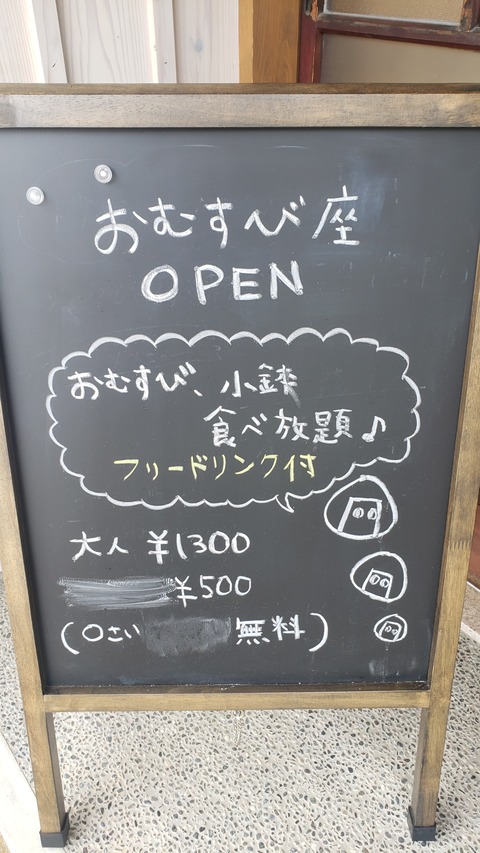 おむすび座
OPEN
おむすび、小鉢
食べ放題♪
フリードリンク付
大人 ¥1300
¥500
(0さい 無料)